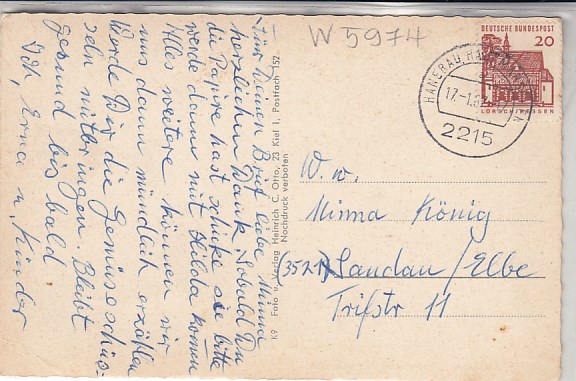 W 5974
DEUTSCHE BUNDESPOST
20
LORSCH/HESSEN
HANERAU-HA
17.-1.
2215
Für Deinen Brief liebe Minna
herzlichen Dank. Sobald Du
die Papire hast schicke sie bitte
werde dann mit Hilda komm
Alles weitere können wir
uns dann mündlich erzählen
Werde Dir die Gemüseschüs-
seln mitbringen. Bleibt
gesund bis bald
Ich, Erna u. Kinder
K9 Foto u. Verlag Heinrich C. Otto, 23 Kiel 1, Postfach 152
Nachdruck verboten
W. w.
Minna König
(3521) Sandau/Elbe
Triftstr 11